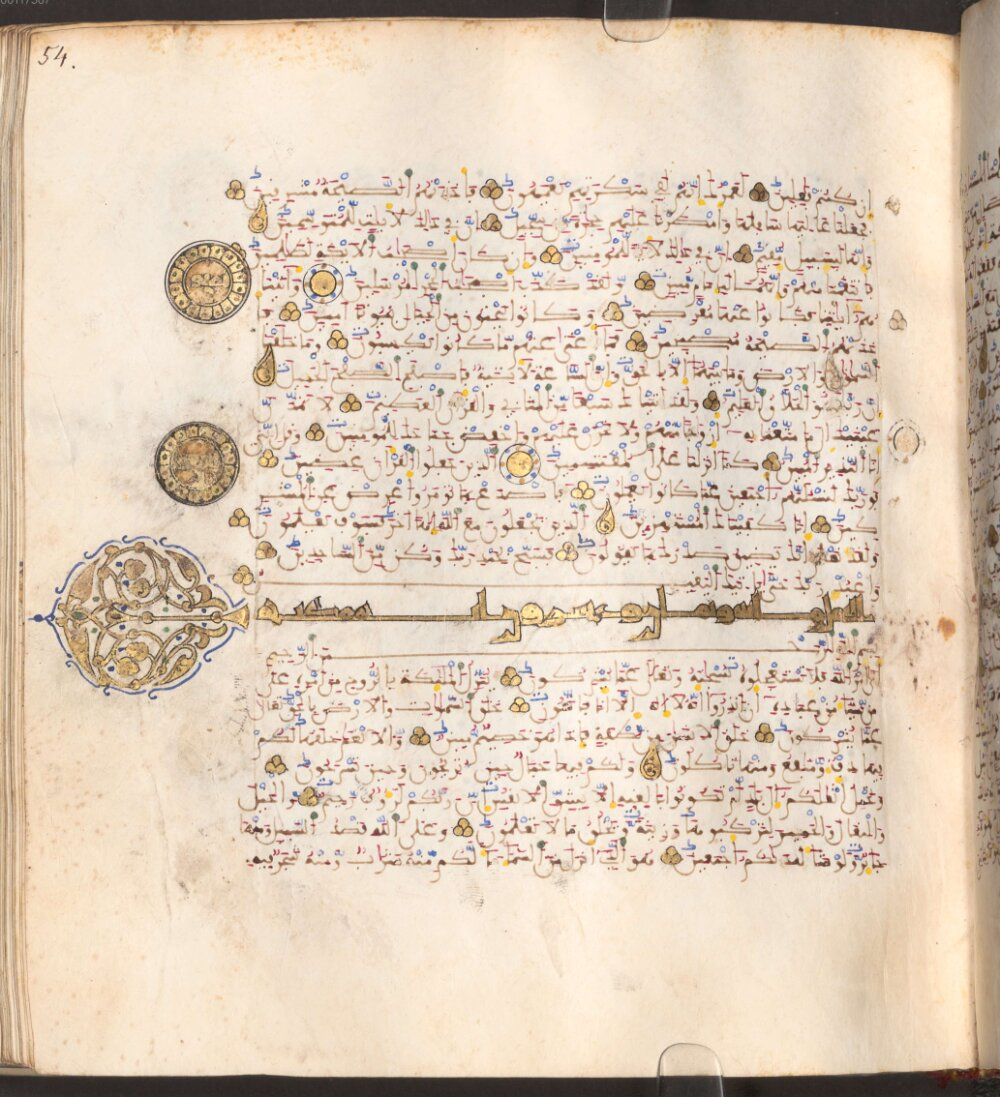 54.
إن كنتم فعلين لعمرك إنهم لفي سكرتهم يعمهون فأخذتهم الصيحة مشرقين
فجعلنا عاليها سافلها وأمطرنا عليهم حجارة من سجيل إن في ذلك لآيت للمتوسمين
وإنها لبسبيل مقيم إن في ذلك لآية للمؤمنين وإن كان أصحب الأيكة لظلمين
فانتقمنا منهم وإنهما لبإمام مبين ولقد كذب أصحب الحجر المرسلين وآتينا
هم آيتنا فكانوا عنها معرضين وكانوا ينحتون من الجبال بيوتا آمنين فأ
خذتهم الصيحة مصبحين فما أغنى عنهم ما كانوا يكسبون وما خلقنا
السموت والأرض وما بينهما إلا بالحق وإن الساعة لآتية فاصفح الصفح الجميل
إن ربك هو الخلق العليم ولقد آتينك سبعا من المثاني والقرآن العظيم لا تمدن
عينيك إلى ما متعنا به أزوجا منهم ولا تحزن عليهم واخفض جناحك للمؤمنين وقل إني
أنا النذير المبين كما أنزلنا على المقتسمين الذين جعلوا القرآن عضين
فوربك لنسئلنهم أجمعين عما كانوا يعملون فاصدع بما تؤمر وأعرض عن المشر
كين إنا كفينك المستهزئين الذين يجعلون مع الله إلها آخر فسوف يعلمون
ولقد نعلم أنك يضيق صدرك بما يقولون فسبح بحمد ربك وكن من السجدين
واعبد ربك حتى يأتيك اليقين
مكية
بسم الله الرحمن الرحيم
أتى أمر الله فلا تستعجلوه سبحنه وتعلى عما يشركون ينزل الملئكة بالروح من أمره على
من يشاء من عباده أن أنذروا أنه لا إله إلا أنا فاتقون خلق السموت والأرض بالحق تعلى
عما يشركون خلق الإنسن من نطفة فإذا هو خصيم مبين والأنعم خلقها لكم
فيها دفء ومنفع ومنها تأكلون ولكم فيها جمال حين تريحون وحين تسرحون
وتحمل أثقالكم إلى بلد لم تكونوا بلغيه إلا بشق الأنفس إن ربكم لرءوف رحيم والخيل
والبغال والحمير لتركبوها وزينة ويخلق ما لا تعلمون وعلى الله قصد السبيل ومنها
جائر ولو شاء لهديكم أجمعين هو الذي أنزل من السماء ماء لكم منه شراب ومنه شجر فيه